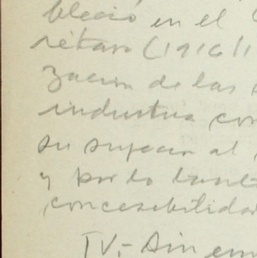 bleció en el
rétaro (1916/1
zación de las
industria con
su sujeción al
y por lo tant
concesibilidad
IV.- Sin em